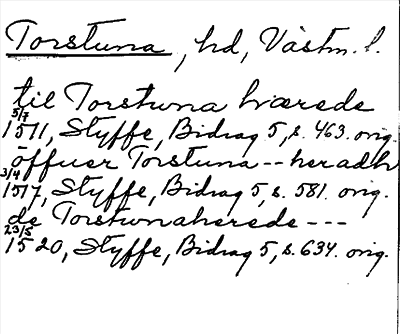 Torstuna, hd, Västm. l.
til Torstuna hværede
5/7
1511, Styffe, Bidrag 5, s. 463. orig.
öffuer Torstuna -- heradh
3/4
1517, Styffe, Bidrag 5, s. 581. orig.
de Torstunaherede ---
23/5
1520, Styffe, Bidrag 5, s. 634. orig.